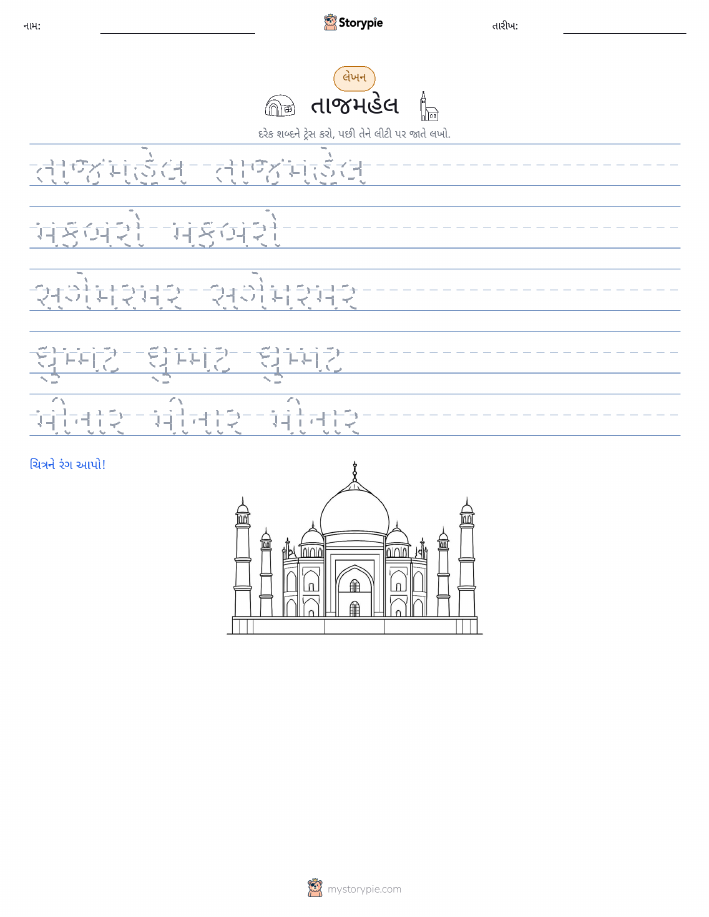 નામ: Storypie તારીખ:
લેખન
તાજમહેલ
દરેક શબ્દને ટ્રેસ કરો, પછી તેને લીટી પર જાતે લખો.
તાજમહેલ તાજમહેલ
મકબરો મકબરો
સંગેમરમર સંગેમરમર
ઘુમ્મટ ઘુમ્મટ ઘુમ્મટ
મીનાર મીનાર મીનાર
ચિત્રને રંગ આપો!
mystorypie.com